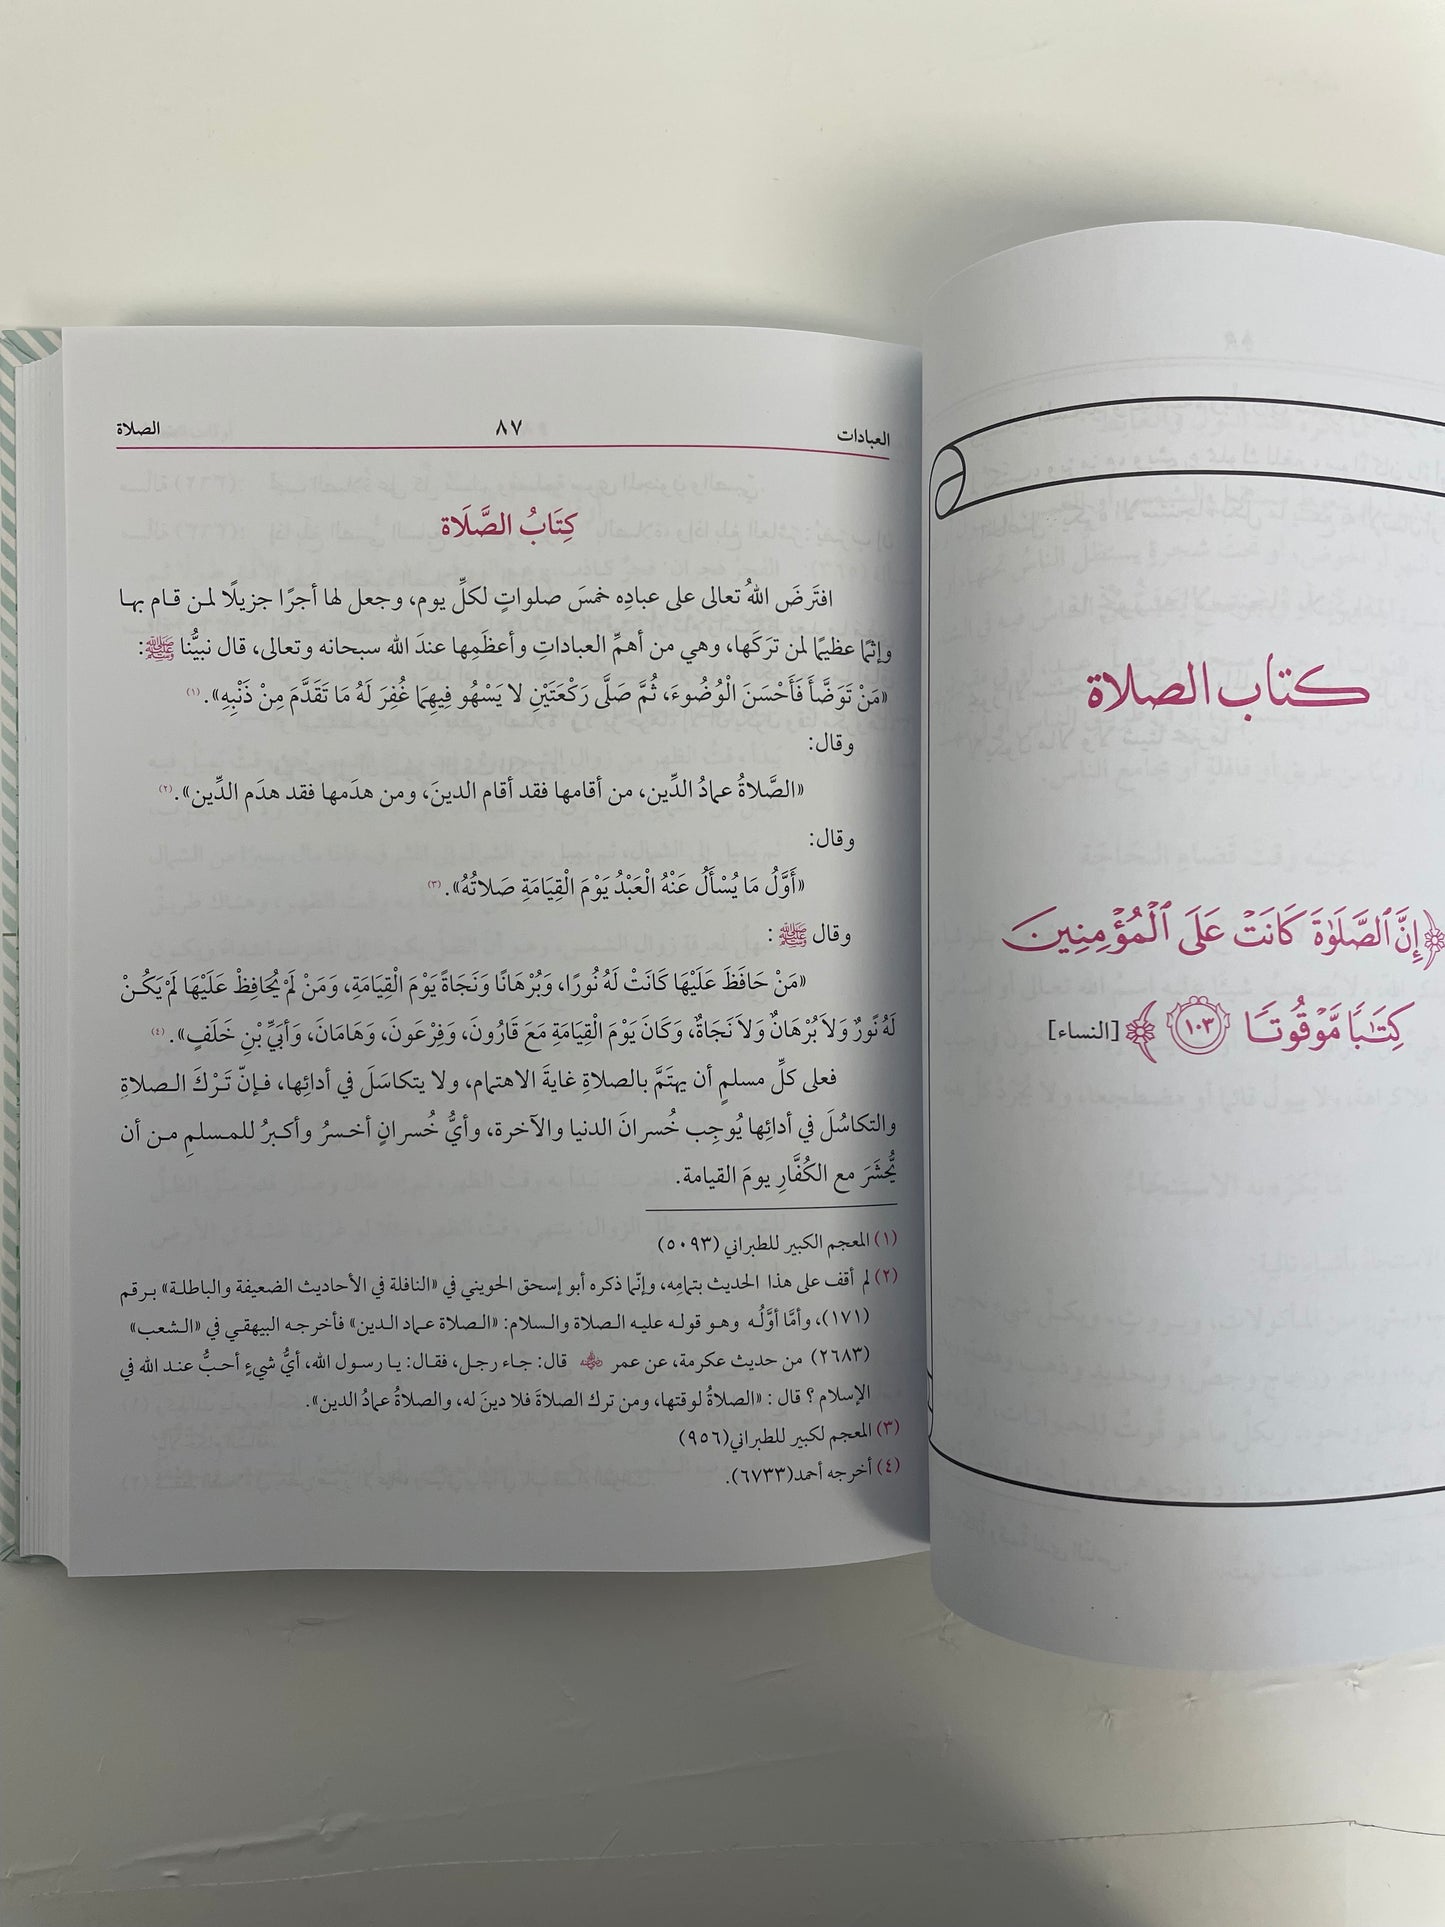 كتاب الصلاة
﴿إِنَّ ٱلصَّلَوٰةَ كَانَتۡ عَلَى ٱلۡمُؤۡمِنِينَ
كِتَٰبٗا مَّوۡقُوتٗا ١٠٣﴾ [النساء]
العبادات ٨٧ الصلاة
كِتَابُ الصَّلَاة
افتَرَضَ اللهُ تعالى على عبادِه خمسَ صلواتٍ لكلِّ يوم، وجعل لها أجرًا جزيلًا لمن قام بها
وإثمًا عظيمًا لمن ترَكَها، وهي من أهمِّ العباداتِ وأعظَمِها عندَ الله سبحانه وتعالى، قال نبيُّنا ﷺ:
«مَنْ تَوَضَّأَ فَأَحْسَنَ الْوُضُوءَ، ثُمَّ صَلَّى رَكْعَتَيْنِ لا يَسْهُو فِيهِمَا غُفِرَ لَهُ مَا تَقَدَّمَ مِنْ ذَنْبِهِ». (١)
وقال:
«الصَّلاةُ عمادُ الدِّين، من أقامها فقد أقام الدينَ، ومن هدَمها فقد هدَم الدِّين». (٢)
وقال:
«أَوَّلُ مَا يُسْأَلُ عَنْهُ الْعَبْدُ يَوْمَ الْقِيَامَةِ صَلاتُهُ». (٣)
وقال ﷺ:
«مَنْ حَافَظَ عَلَيْهَا كَانَتْ لَهُ نُورًا، وَبُرْهَانًا وَنَجَاةً يَوْمَ الْقِيَامَةِ، وَمَنْ لَمْ يُحَافِظْ عَلَيْهَا لَمْ يَكُنْ
لَهُ نُورٌ وَلاَ بُرْهَانٌ وَلاَ نَجَاةٌ، وَكَانَ يَوْمَ الْقِيَامَةِ مَعَ قَارُونَ، وَفِرْعَونَ، وَهَامَانَ، وَأُبَيِّ بْنِ خَلَفٍ». (٤)
فعلى كلِّ مسلمٍ أن يهتَمَّ بالصلاةِ غايةَ الاهتمام، ولا يتكاسَلَ في أدائِها، فإنّ تَرْكَ الصلاةِ
والتكاسُلَ في أدائِها يُوجِب خُسرانَ الدنيا والآخرة، وأيُّ خُسرانٍ أخسرُ وأكبرُ للمسلمِ من أن
يُّحشَرَ مع الكُفَّارِ يومَ القيامة.
(١) المعجم الكبير للطبراني (٥٠٩٣)
(٢) لم أقف على هذا الحديث بتمامِه، وإنّما ذكره أبو إسحق الحويني في «النافلة في الأحاديث الضعيفة والباطلة» برقم
(١٧١)، وأمَّا أوَّلُه وهو قوله عليه الصلاة والسلام: «الصلاة عماد الدين» فأخرجه البيهقي في «الشعب»
(٢٦٨٣) من حديث عكرمة، عن عمر رضي الله عنه قال: جاء رجل، فقال: يا رسول الله، أيُّ شيءٍ أحبُّ عند الله في
الإسلام؟ قال: «الصلاةُ لوقتها، ومن ترك الصلاةَ فلا دينَ له، والصلاةُ عمادُ الدين».
(٣) المعجم لكبير للطبراني(٩٥٦)
(٤) أخرجه أحمد(٦٧٣٣).